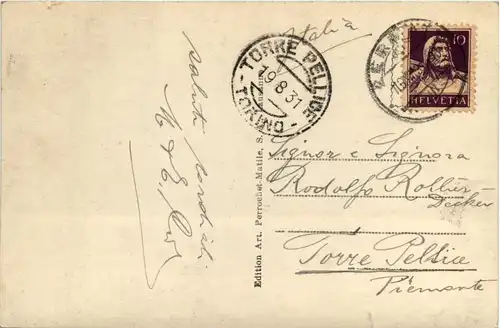 Italia
saluti cordiali
TORRE PELLICE - TORINO
19.8.31
10
HELVETIA
Signor e Signora
Rodolfo Rollier
Decker
Torre Pellice
Piemonte
Edition Art. Perrochet-Matile, S.